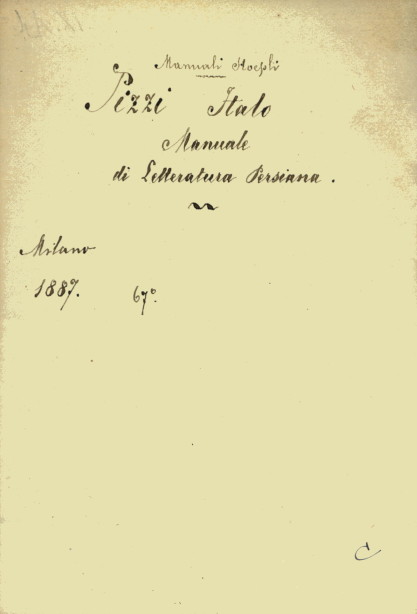 Manuali Hoepli
Pizzi Italo
Manuale
di Letteratura Persiana.
Milano
1887. 67°.
C